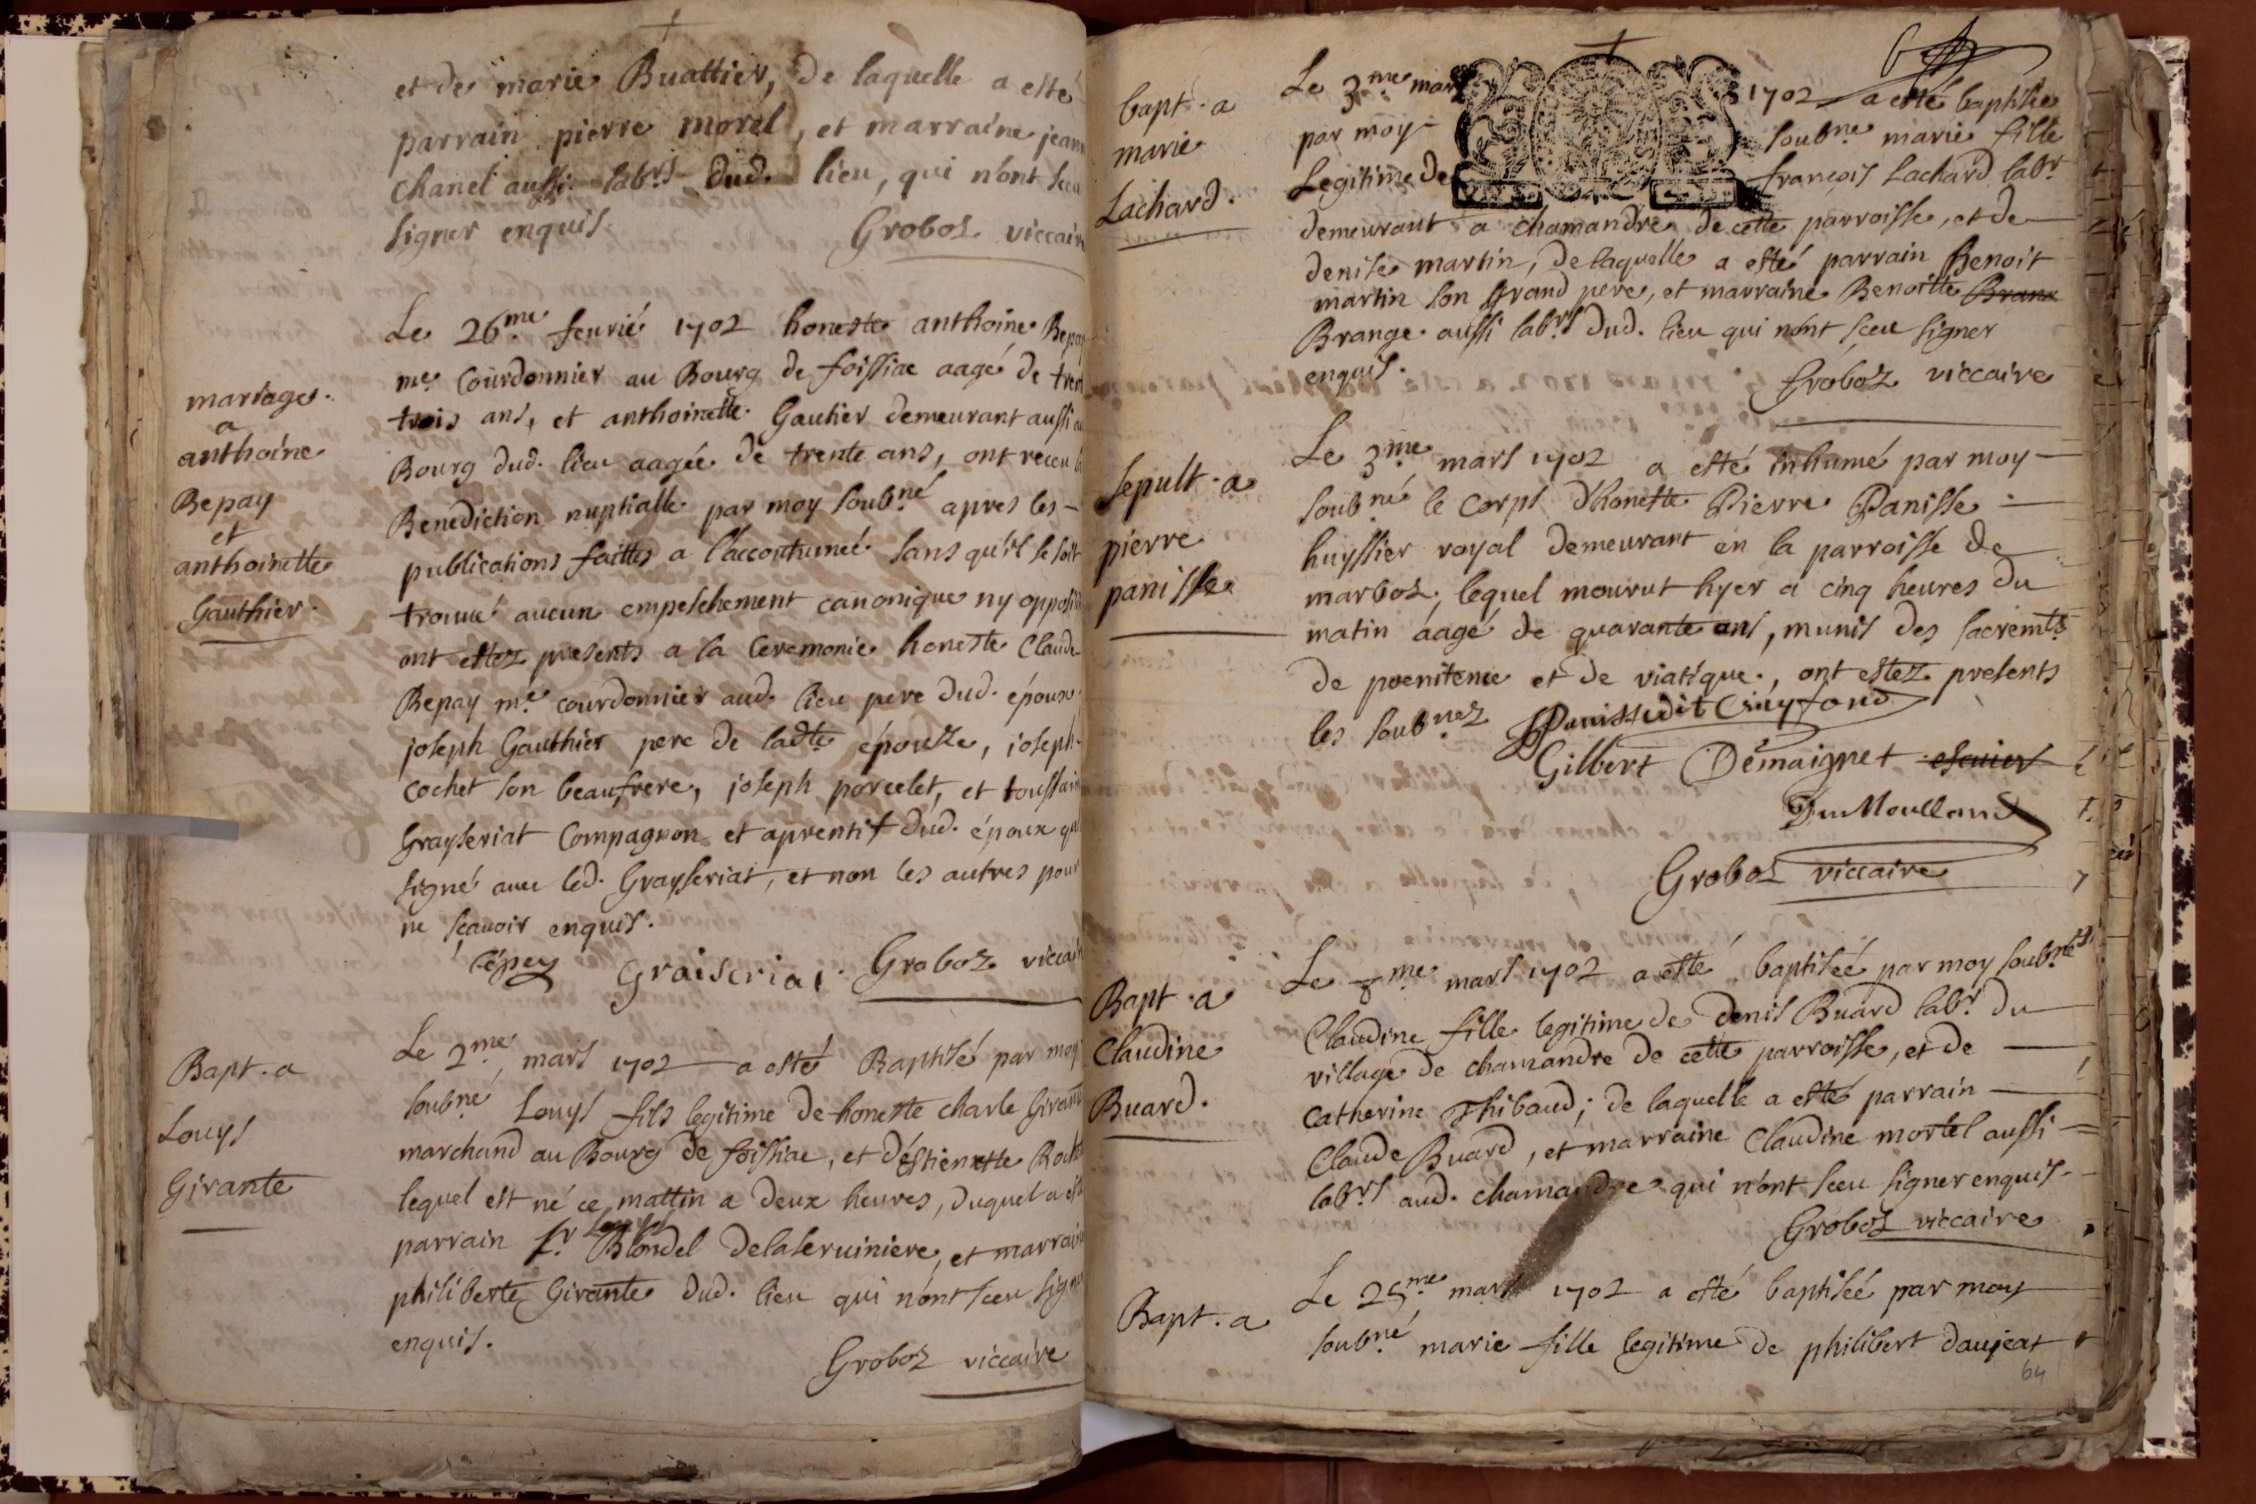 et de marie Buattier, de laquelle a esté
parrain pierre morel, et marraine jeann
Chanel aussi labrs dud. lieu, qui n'ont sceu
signer enquis.
Groboz viccaire
mariage
a
anthoine
Bepay
et
anthoinette
Gauthier.
Le 26me feurié 1702 honeste anthoine Bepay
me Courdonnier au Bourg de foissiac aagé de trent
trois ans, et anthoinette Gautier demeurant aussi au
Bourg dud. lieu aagée de trente ans, ont receu la
Benediction nuptialle par moy soubné apres les
publications faittes a l'accoutumeé sans qu'il se soit
trouué aucun empeschement canonique ny oppositi
ont estez presents a la Ceremonie honeste Claude
Bepay me courdonnier aud. lieu pere dud. époux
joseph Gauthier pere de ladte épouse, joseph
cochet son beaufrere, joseph porcelet, et toussain
Grayseriat Compagnon et aprentif dud. époux qui
signé auec led. Grayseriat, et non les autres pour
ne sçauoir enquis.
Graiseriat Groboz viccaire
Bapt. a
Louys
Girante
Le 2me mars 1702 a esté Baptisé par moy
soubné Louys fils legitime de honeste charle Girante
marchand au Bourg de foissiac, et d'éstiennette
lequel est né ce mattin a deux heures, duquel a esté
parrain Sr Louys Blondel delaseruiniere, et marraine
philiberte Girante dud. lieu qui n'ont sceu signer
enquis.
Groboz viccaire
bapt. a
marie
Lachard.
Le 3me mars 1702 a esté baptisée
par moy soubne marie fille
Legitime de françois Lachard labr
demeurant a chamandre de cette parroisse, et de
denise martin, de laquelle a esté parrain Benoit
martin son grand pere, et marraine Benoitte Brane
Brange aussi labrs dud. lieu qui n'ont sceu signer
enquis.
Groboz viccaire
Sepult. a
pierre
panisse
Le 3me mars 1702 a esté inhumé par moy
soubné le corps d'honeste Pierre Panisse
huyssier royal demeurant en la parroisse de
marboz, lequel mourut hyer a cinq heures du
matin aagé de quarante ans, munis des sacremts
de poenitence et de viatique, ont estez presents
les soubnez Panisse dit
Gilbert Démaignet escuier
DuMoulland
Groboz viccaire
Bapt. a
Claudine
Buard.
Le me mars 1702 a esté baptiseé par moy soubné
Claudine fille legitime de denis Buard labr du
village de chamandre de cette parroisse, et de
Catherine Thibaud; de laquelle a esté parrain
Claude Buard, et marraine Claudine mortel aussi
labrs aud. chamandre qui n'ont sceu signer enquis.
Groboz viccaire
Bapt. a
Le 25me mars 1702 a esté baptiseé par moy
soubné marie fille legitime de philibert daujeat
64